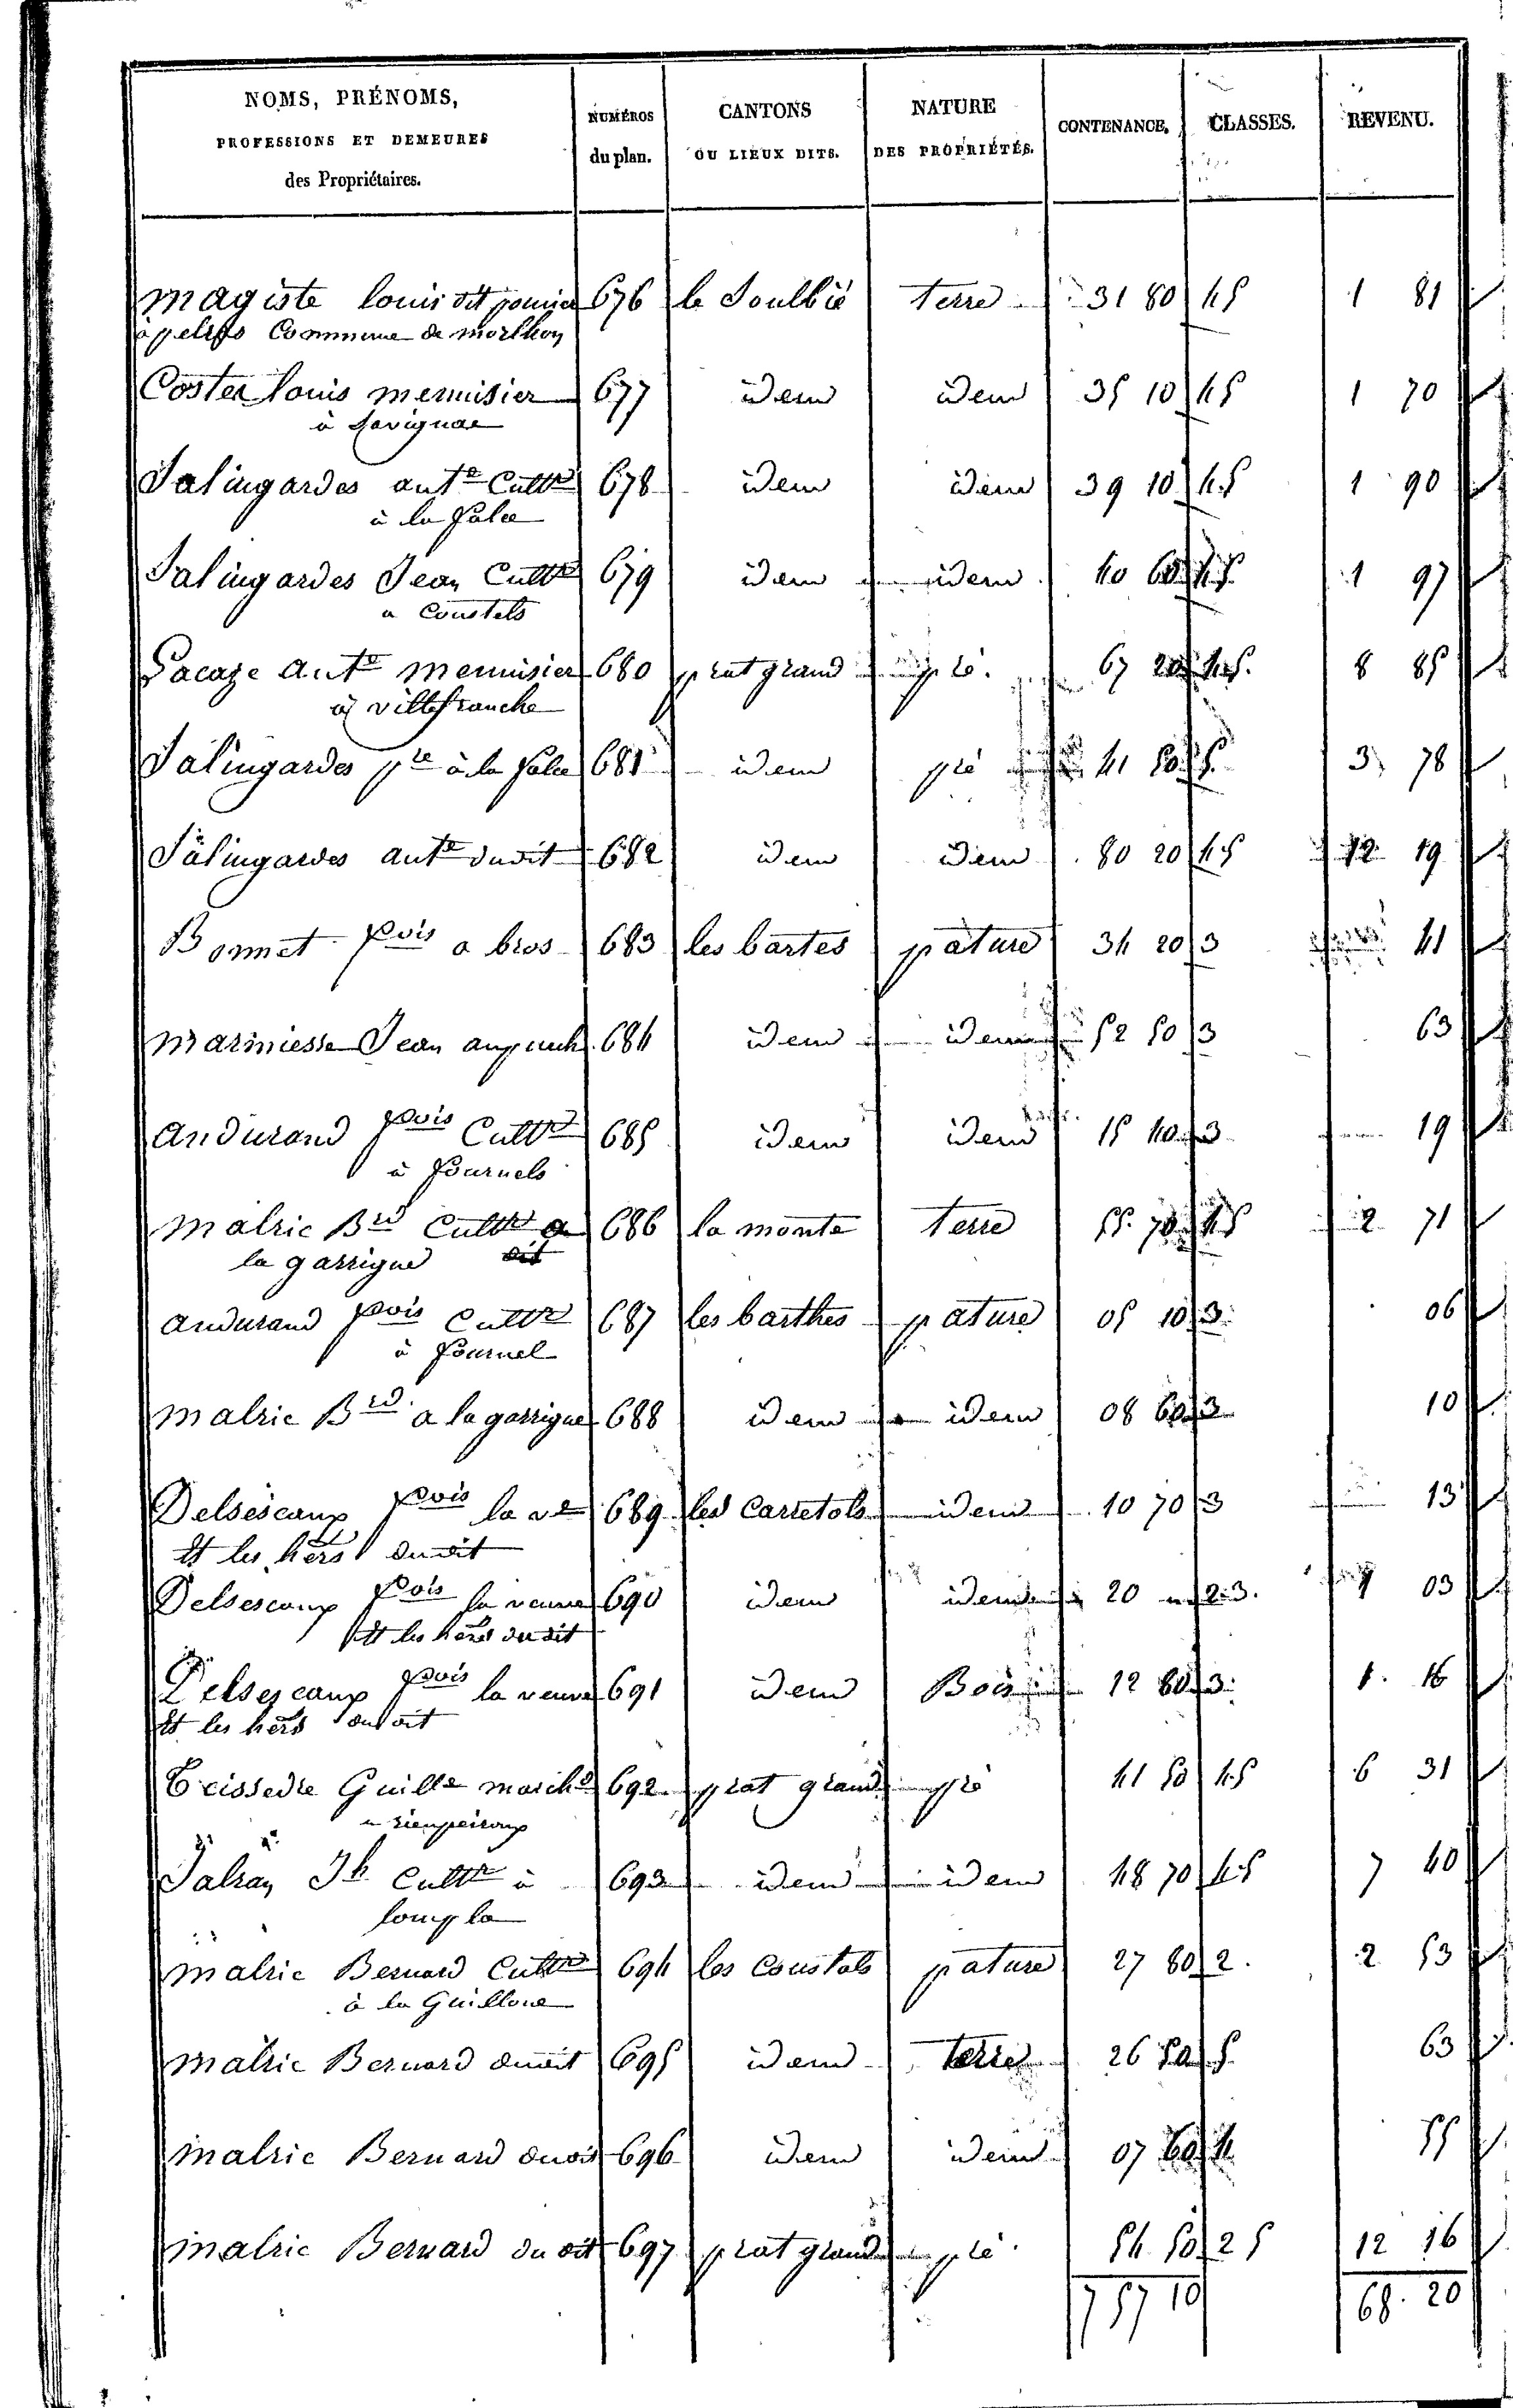 NOMS, PRÉNOMS,
PROFESSIONS ET DEMEURES
des Propriétaires.
NUMÉROS
du plan.
CANTONS
OU LIEUX DITS.
NATURE
DES PROPRIÉTÉS.
CONTENANCE.
CLASSES.
REVENU.
Magiste louis dit 676 le Soulbié terre 31 80 4 5 1 81
à Commune de morlhon
Coster louis menuisier 677 idem idem 35 10 4 5 1 70
à Savignac
Salingardes ante Cultr 678 idem idem 39 10 4.5 1 90
à la
Salingardes Jean Cultr 679 idem idem 40 60 4.5 1 97
a Coustels
Lacaze Ante menuisier 680 prat grand pré. 67 20 4.5. 8 85
à villefranche
Salingardes pre à la 681 idem pré 41 50 5. 3 78
Salingardes ante dudit 682 idem idem 80 20 4.5 12 19
Bonnet fois a bros 683 les bartes pature 34 20 3 41
marmiesse Jean au puech 684 idem idem 52 50 3 63
andurand fois Cultr 685 idem idem 15 40 3 19
à fournels
malric Brd Cultr a 686 la monte terre 55. 70 4 5 2 71
la garrigue
andurand fois Cultr 687 les barthes pature 05 10 3. 06
à fournel
malric Brd a la garrigue 688 idem idem 08 60 3 10
Delsescaux fois la ve 689 les Carretols idem 10 70 3 13
Et les hers dudit
Delsescaux fois la veuve 690 idem idem 20 2.3. 03
Et les hers dudit
Delsescaux fois la veuve 691 idem Bois 12 80 3. 1. 16
Et les hers dudit
Teissedre Guille march 692 prat grand pré 41 50 4.5 6 31
a rieupeiroux
Jh Cultr à 693 idem idem 48 70 4.5 7 40
malric Bernard Cultr 694 les Coustals pature 27 80 2. 2 53
à la Guillone
malric Bernard dudit 695 idem terre 26 50 5 63
malric Bernard dudit 696 idem idem 07 60 4 55
malric Bernard dudit 697 prat grand pré 54 50 2 5 12 16
7 57 10 68. 20